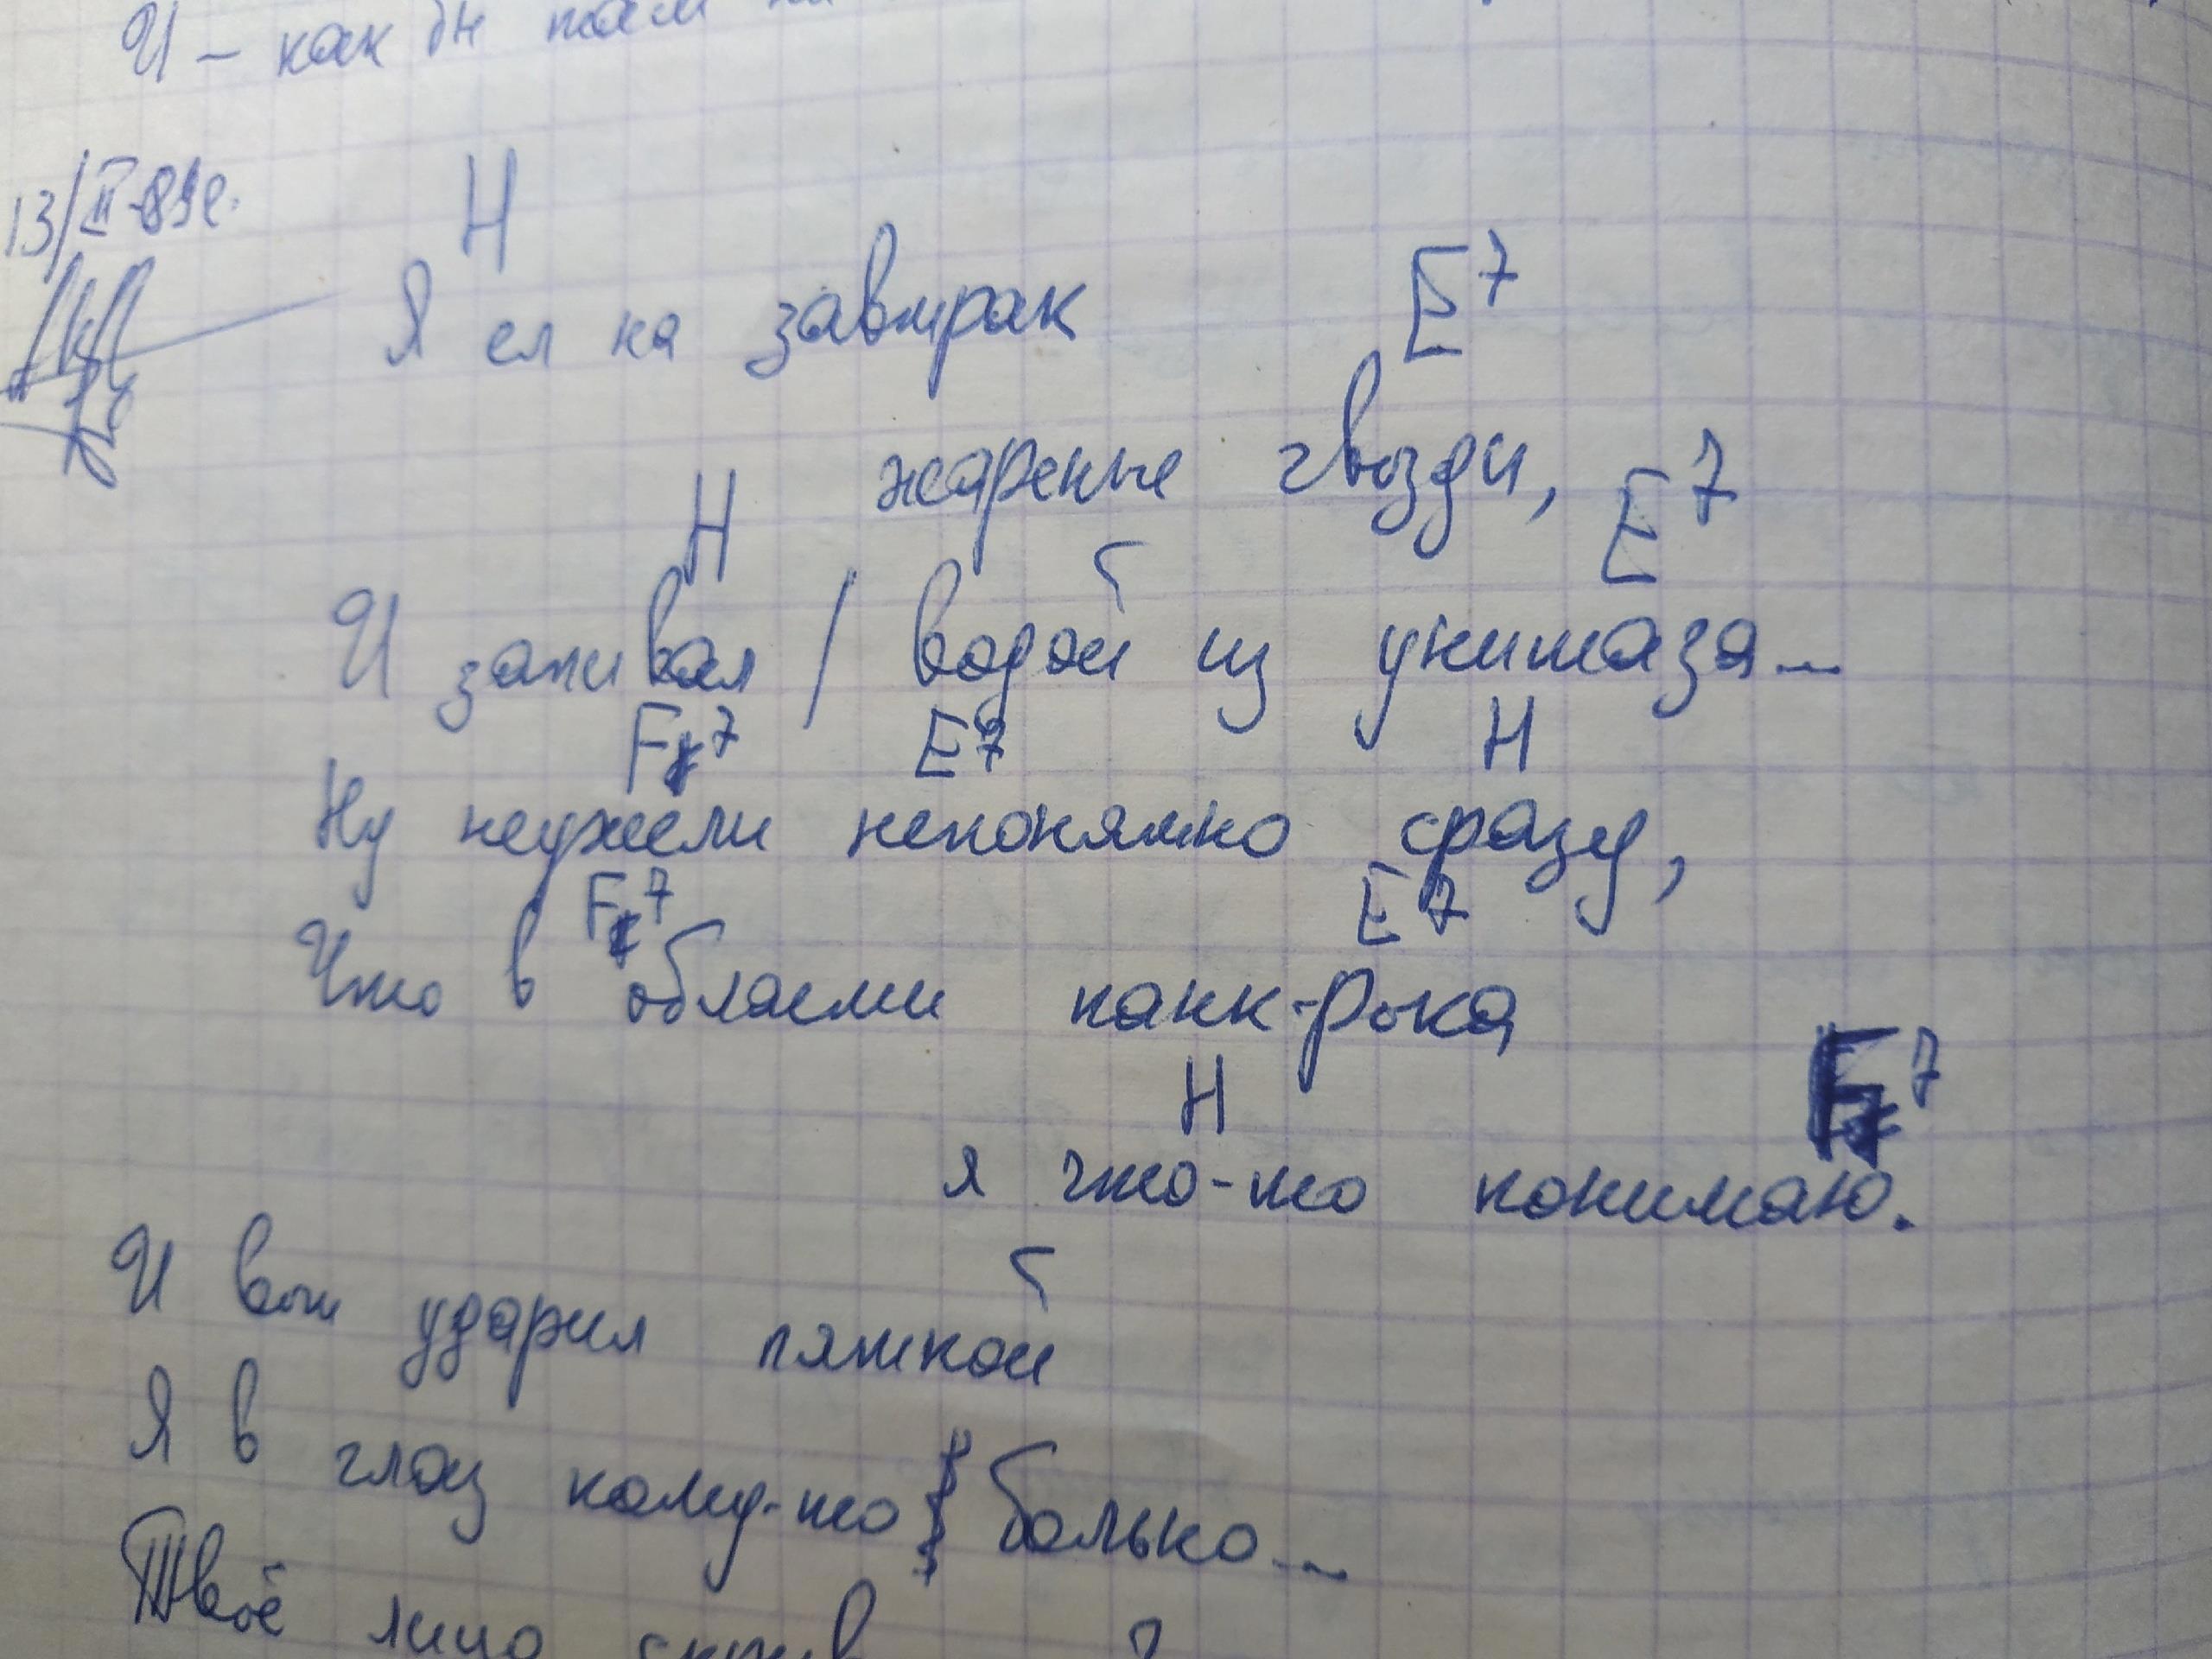 И – как бы там
13/III-89г.
H
Я ел на завтрак
E7
жареные гвозди,
H E7
И запивал / водой из унитаза...
F#7 E7 H
Ну неужели непонятно сразу,
F#7 E7
Что в области панк-рока
H F#7
я что-то понимаю.
И вот ударил пяткой
Я в глаз кому-то больно...
Твоё лицо